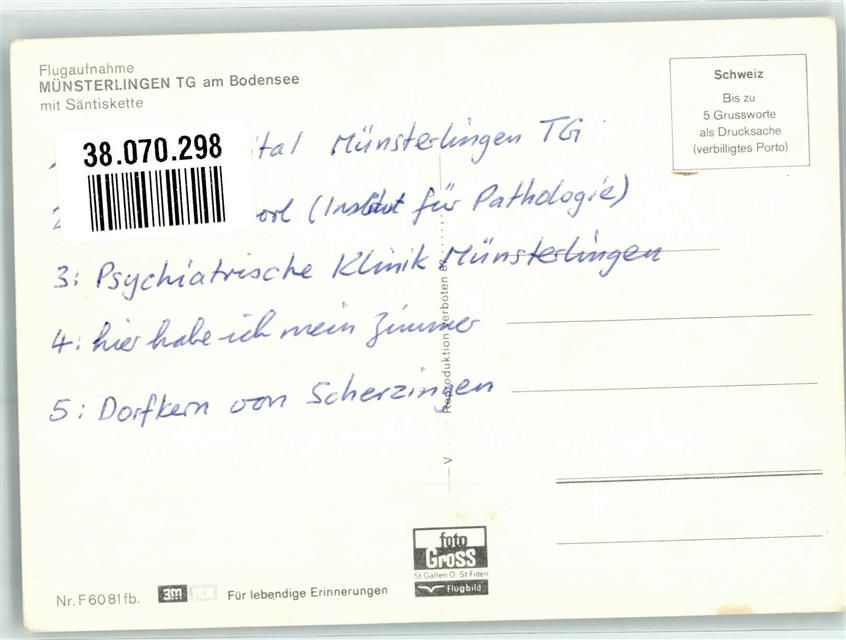 Flugaufnahme
MÜNSTERLINGEN TG am Bodensee
mit Säntiskette
Schweiz
Bis zu
5 Grussworte
als Drucksache
(verbilligtes Porto)
38.070.298
ital Münsterlingen TG
(Institut für Pathologie)
3: Psychiatrische Klinik Münsterlingen
4: hier habe ich mein Zimmer
5: Dorfkern von Scherzingen
V Reproduktion verboten
foto
Gross
St Gallen O St Fiden
Flugbild
Nr. F 6081 fb.
3m Für lebendige Erinnerungen